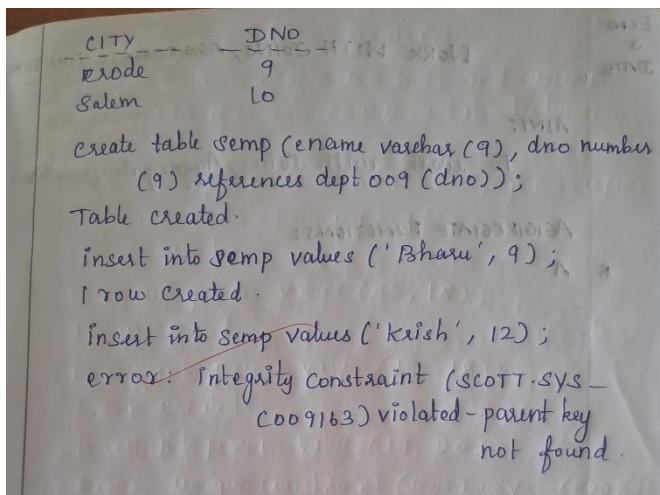 CITY DNO
Erode 9
Salem 10
create table semp (ename varchar (9), dno number
(9) references dept 009 (dno));
Table created.
insert into semp values ('Bharu', 9);
1 row created.
insert into semp values ('Krish', 12);
error: integrity constraint (SCOTT.SYS_
C009163) violated - parent key
not found.